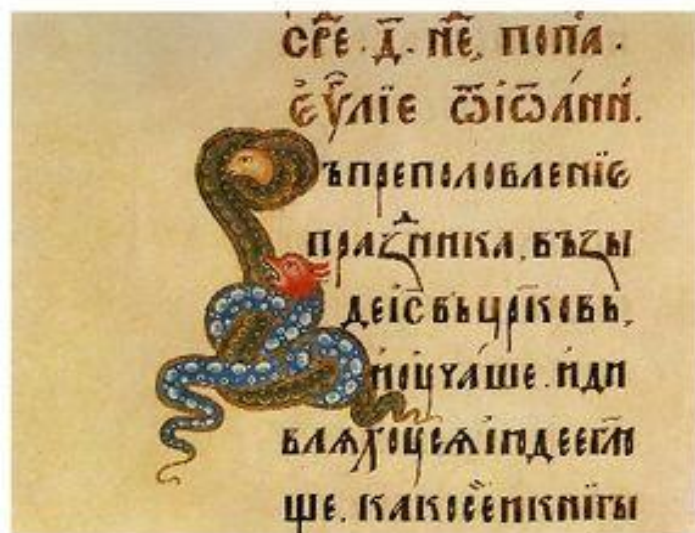 СРЕ. Д҃. НЕ, ПОПА.
ЕУЛІЕ ѾІѠАНН.
ЪПРЕПОЛОВЛЕНІЕ
ПРАЗⷣННИКА, ВЪЗЫ
ДЕІС҃ ВЪЦРКОВЬ,
ИОУЧАШЕ. ИДИ
ВЛѦХОУСѦІЮДЕЕГЛЮ
ЩЕ. КАКОСЕИКНИГЫ